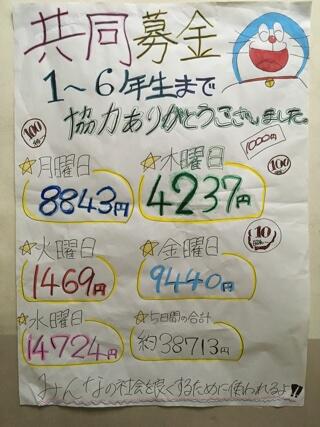 共同募金
1～6年生まで
協力ありがとうございました。
100
1000円
100
☆月曜日
8843円
☆木曜日
4237円
10
☆火曜日
1469円
☆金曜日
9440円
☆水曜日
14724円
☆5日間の合計
約38713円
みんなの社会を良くするために使われるよ!!